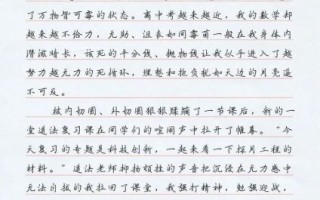 了万物皆可雾的状态。离中考越来越近，我的数学却
越来越不给力，无助、沮丧如同雾霾一般在我身体内
潜滋暗长，该死的平分线、抛物线让我似乎进入了越
努力越无力的死循环，理想和抱负犹如天边的月亮遥
不可及。
被内切圆、外切圆狠狠蹂躏了一节课后，新的一
堂道法复习课在同学们的喧闹声中拉开了帷幕。“今
天复习的专题是科技创新，一起来看一下探月工程的
材料。”道法老师抑扬顿挫的声音把沉浸在无力感中
无法自拔的我拉回了课堂，我强打精神，勉强迎战，